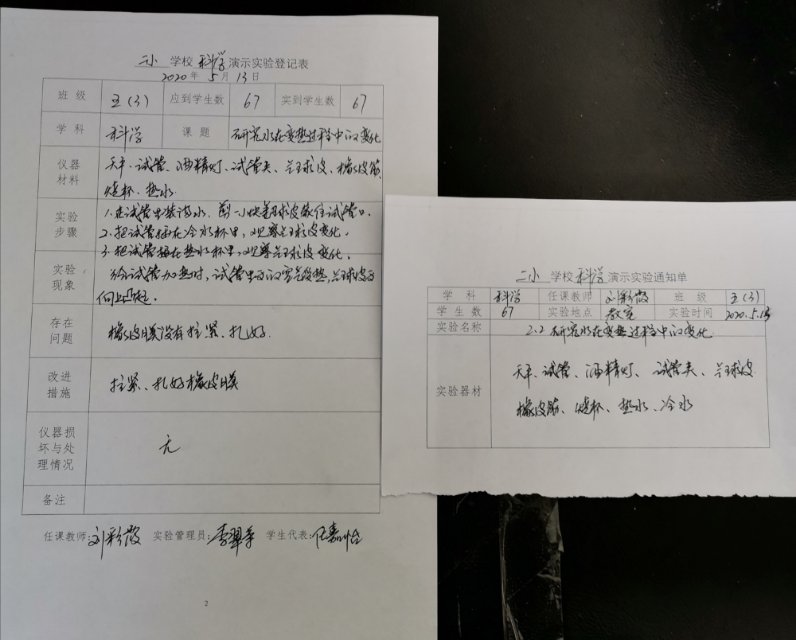 二小 学校 科学 演示实验登记表
2020 年 5 月 13 日
班 级 五(3) 应到学生数 67 实到学生数 67
学 科 科学 课 题 研究水在变热过程中的变化
仪器材料 天平、试管、酒精灯、试管夹、气球皮、橡皮筋
烧杯、热水
实验步骤 1.在试管里装满水,剪一小块气球皮蒙住试管口。
2.把试管插在冷水杯里,观察气球皮变化。
3.把试管插在热水杯里,观察气球皮变化。
实验现象 给试管加热时,试管里的水受热,气球皮
向上凸起。
存在问题 橡皮膜没有拉紧、扎好。
改进措施 拉紧、扎好橡皮膜
仪器损坏与处理情况 无
备注
任课教师:刘彩霞 实验管理员: 学生代表:任嘉怡
2
二小 学校 科学 演示实验通知单
学 科 科学 任课教师 刘彩霞 班 级 五(3)
学生数 67 实验地点 教室 实验时间 2020.5.13
实验名称 2.2 研究水在变热过程中的变化
实验器材 天平、试管、酒精灯、试管夹、气球皮
橡皮筋、烧杯、热水、冷水